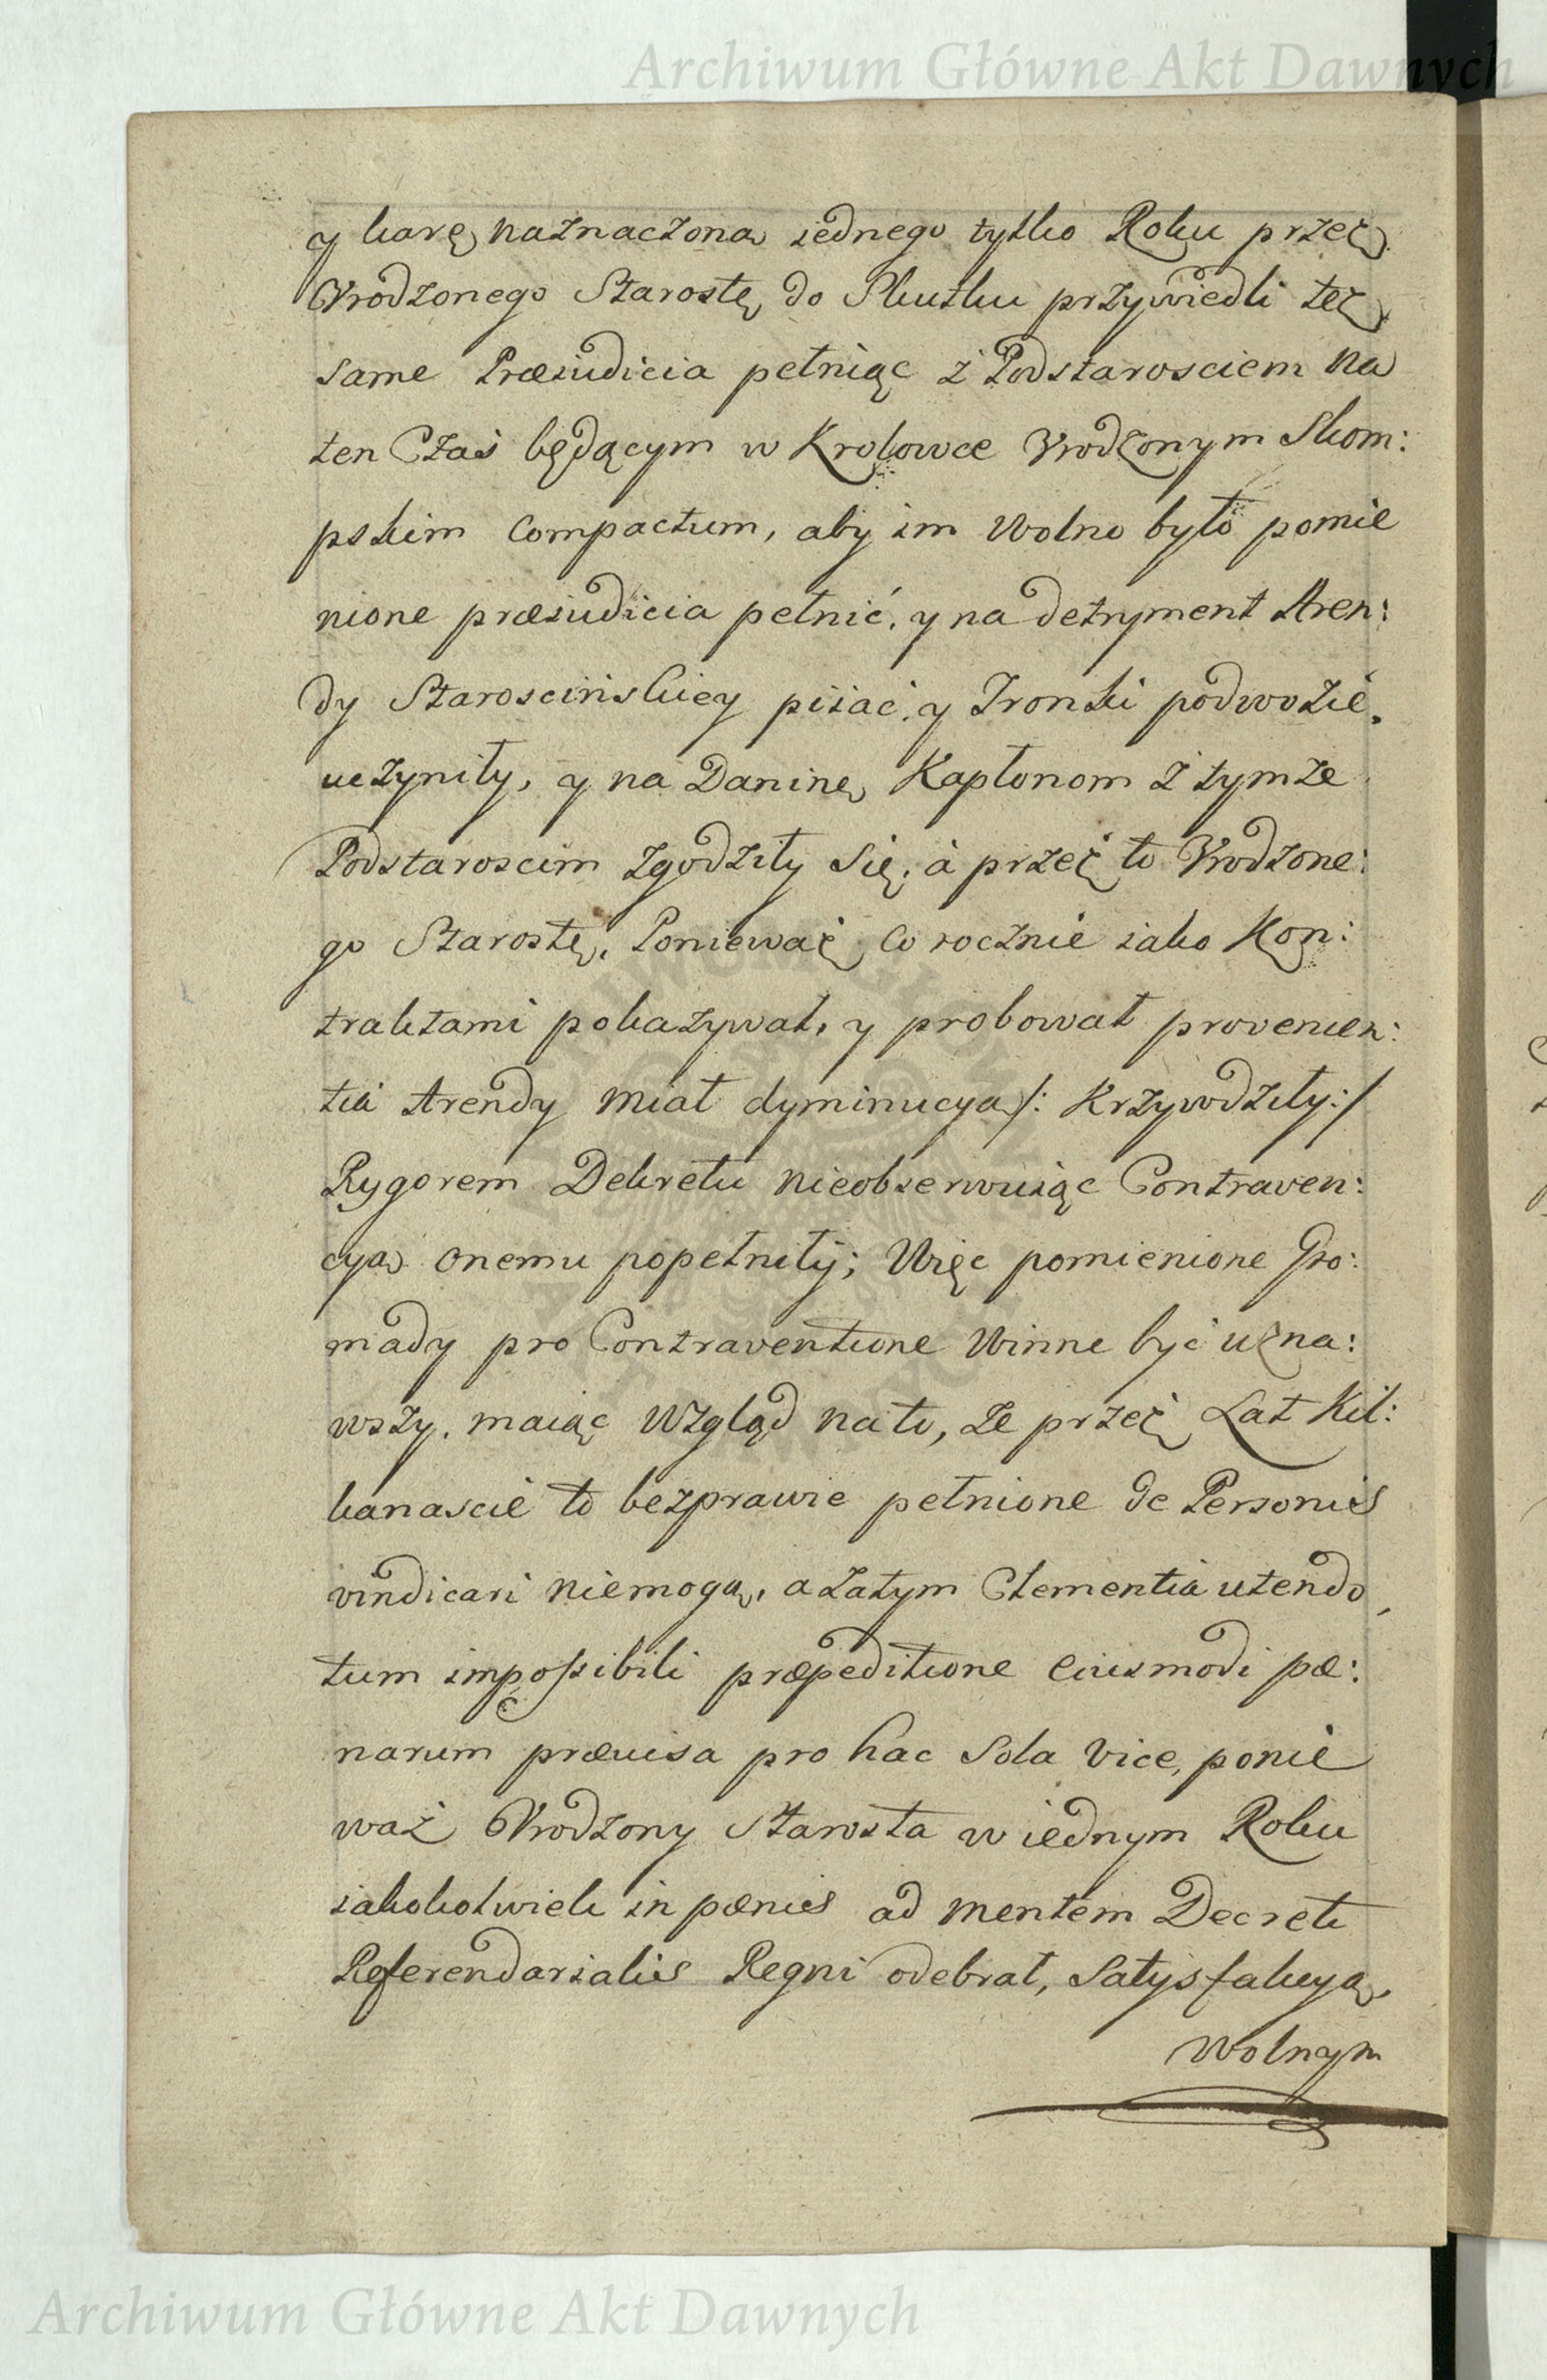 Archiwum Główne Akt Dawnych
y karę naznaczoną iednego tylko Roku przez
Vrodzonego Starostę do Skutku przywiedli też
same Præiudicia pełniąc z Podstarosciem na
ten Czas będącym w Krolowce Vrodzonym Skom:
pskim Compactum, aby im Wolno było pomie
nione præiudicia pełnić, y na detryment Aren:
dy Staroscińskiey pisać, y Tronki podwozić,
uczyniły, y na Daninę Kapłonom z tymze
Podstaroscim zgodziły się, à przez to Vrodzone:
go Starostę, Ponieważ co rocznie iako Kon:
traktami pokazywał, y probował provenien:
tia Arendy miał dyminucyą /: Krzywdziły :/
Rygorem Dekretu nieobserwuiąc Contraven:
cyą onemu popełniły; Więc pomienione Gro:
mady pro Contraventione Winne być uzna:
wszy, maiąc Wzgląd na to, ze przez Lat Kil:
kanascie to bezprawie pełnione de Personis
vindicari niemogą, a zatym Clementia utendo,
tum impossibili præpeditione eiusmodi pæ:
narum præuisa pro hac Sola Vice, ponie
waż Vrodzony Starosta w iednym Roku
iakokolwiek in pænis ad mentem Decreti
Referendarialis Regni odebrał, Satysfakcyą,
Wolnym
Archiwum Główne Akt Dawnych